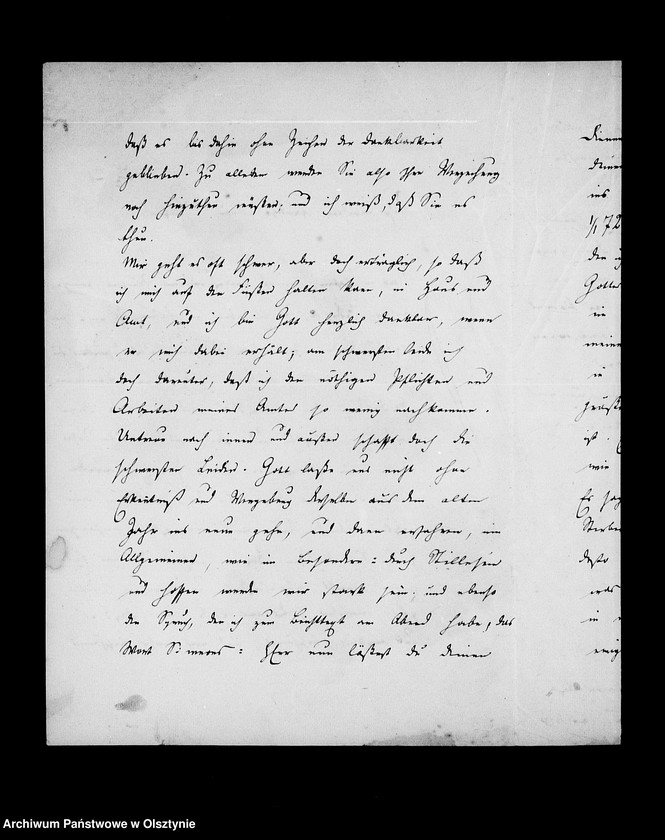 daß es bis dahin ohne Zeichen der Dankbarkeit
geblieben. Zu alledem werden Sie also Ihre Verzeihung
noch hinzuthun müssen; und ich weiß, daß Sie es
thun.
Mir geht es oft schwer, aber doch erträglich, so daß
ich mich auf den Füßen halten kann, in Haus und
Amt, und ich bin Gott herzlich dankbar, wenn
er mich dabei erhält; am schwersten leide ich
doch darunter, daß ich den nöthigen Pflichten und
Arbeiten meines Amtes so wenig nachkomme.
Untreue nach innen und außen schafft doch die
schwersten Leiden. Gott lasse uns nicht ohne
Erkenntniß und Vergebung derselben aus dem alten
Jahr ins neue gehn, und dann erfahren, im
Allgemeinen, wie im Besondern: durch Stillesein
und Hoffen werdet ihr stark sein; und ebenso
den Spruch, den ich zum Beichttext am Abend habe, das
Wort Simeons: HErr nun lässest du deinen
Diene
deine
ins
1/1 72
den
Gottes
in
meine
in
größt
ist.
wie
Es
Sterbe
desto
was
in
ewig
Archiwum Państwowe w Olsztynie